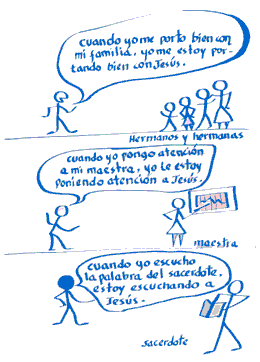 cuando yo me porto bien con
mi familia, yo me estoy por-
tando bien con Jesús.
Hermanos y hermanas
cuando yo pongo atención
a mi maestra, yo le estoy
poniendo atención a Jesús.
maestra
cuando yo escucho
la palabra del sacerdote,
estoy escuchando a
Jesús.
sacerdote